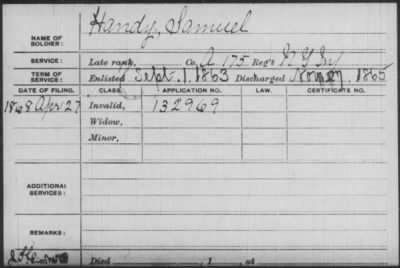 NAME OF SOLDIER: Handy, Samuel
SERVICE: Late rank, Co. A 175 Reg't N Y Inf
TERM OF SERVICE: Enlisted Sept. 1, 1863 Discharged 1865
DATE OF FILING. CLASS. APPLICATION NO. LAW. CERTIFICATE NO.
1868 Apr 27 Invalid, 132969
Widow,
Minor,
ADDITIONAL SERVICES:
REMARKS:
Died , 1 , at